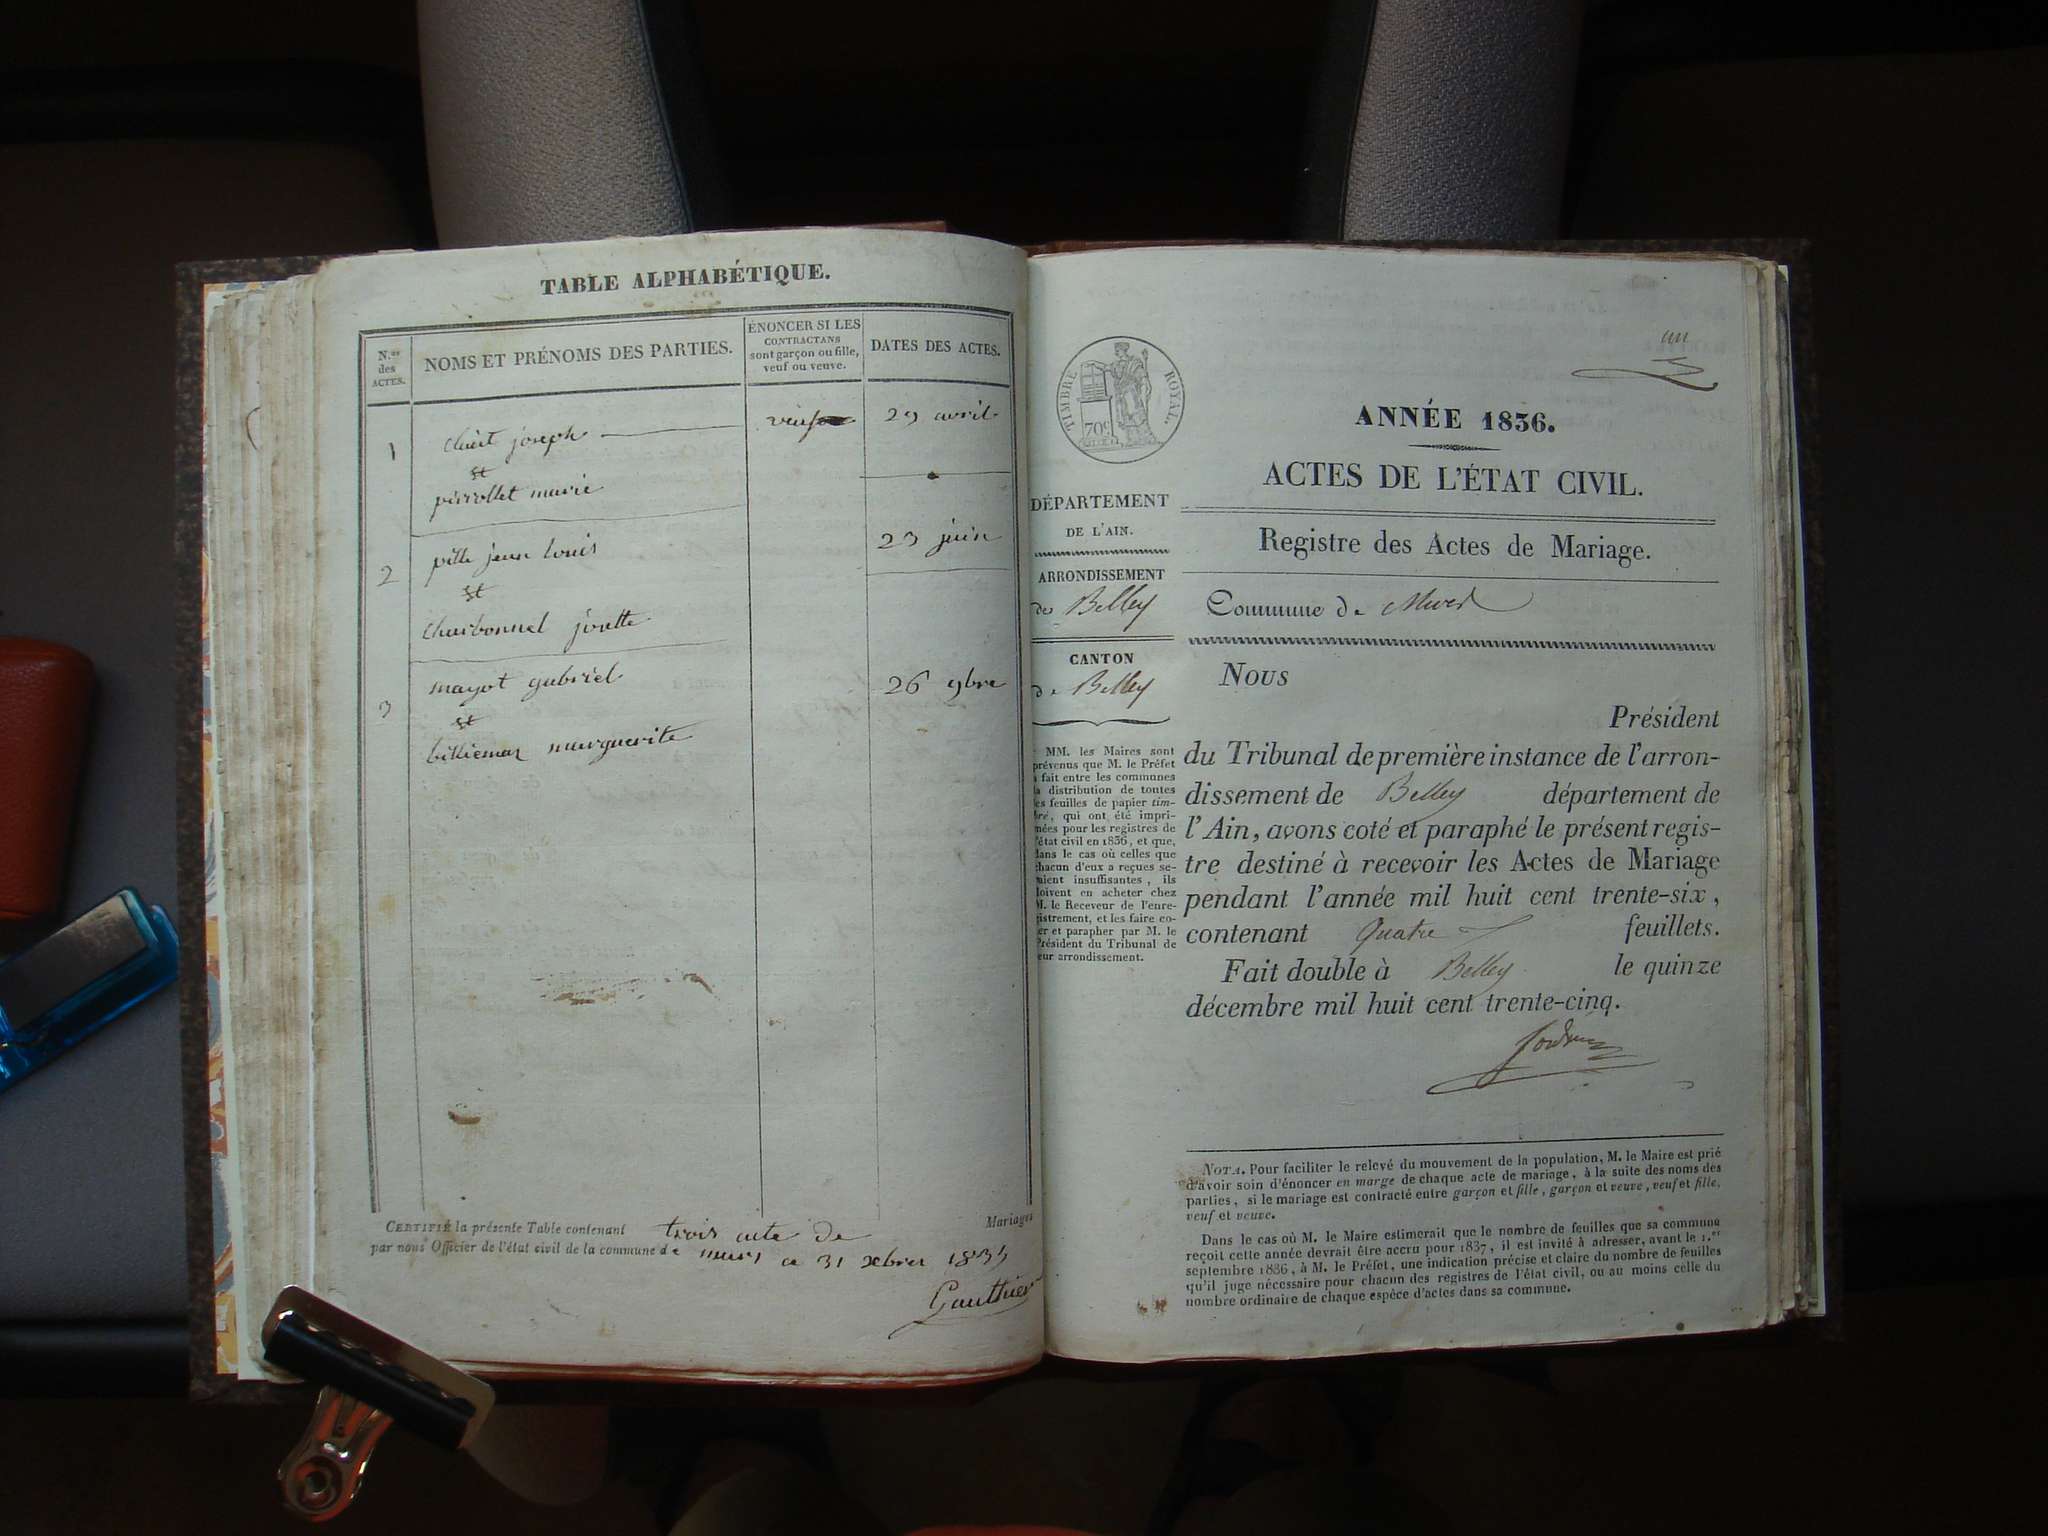 TABLE ALPHABÉTIQUE.
N.os des ACTES.
NOMS ET PRÉNOMS DES PARTIES.
ÉNONCER SI LES
CONTRACTANS
sont garçon ou fille,
veuf ou veuve.
DATES DES ACTES.
1
joseph
29 avril
et
pirrollet marie
2
pitte jean louis
23 juin
et
charbonnel josette
3
mayot gabriel
26 9bre
et
billiemaz marguerite
CERTIFIÉ la présente Table contenant trois acte de Mariages
par nous Officier de l'état civil de la commune de murs ce 31 xbres 1835
Gauthier
un
TIMBRE ROYAL.
70c
ANNÉE 1836.
ACTES DE L'ÉTAT CIVIL.
Registre des Actes de Mariage.
Commune de
DÉPARTEMENT
DE L'AIN.
ARRONDISSEMENT
de Belley
CANTON
de Belley
MM. les Maires sont
prévenus que M. le Préfet
a fait entre les communes
la distribution de toutes
les feuilles de papier tim-
bré, qui ont été impri-
mées pour les registres de
l'état civil en 1836, et que,
dans le cas où celles que
chacun d'eux a reçues se-
raient insuffisantes, ils
doivent en acheter chez
M. le Receveur de l'enre-
gistrement, et les faire co-
ter et parapher par M. le
Président du Tribunal de
leur arrondissement.
Nous
Président
du Tribunal de première instance de l'arron-
dissement de Belley département de
l'Ain, avons coté et paraphé le présent regis-
tre destiné à recevoir les Actes de Mariage
pendant l'année mil huit cent trente-six,
contenant Quatre feuillets.
Fait double à Belley le quinze
décembre mil huit cent trente-cinq.
NOTA. Pour faciliter le relevé du mouvement de la population, M. le Maire est prié
d'avoir soin d'énoncer en marge de chaque acte de mariage, à la suite des noms des
parties, si le mariage est contracté entre garçon et fille, garçon et veuve, veuf et fille,
veuf et veuve.
Dans le cas où M. le Maire estimerait que le nombre de feuilles que sa commune
reçoit cette année devrait être accru pour 1837, il est invité à adresser, avant le 1.er
septembre 1836, à M. le Préfet, une indication précise et claire du nombre de feuilles
qu'il juge nécessaire pour chacun des registres de l'état civil, ou au moins celle du
nombre ordinaire de chaque espèce d'actes dans sa commune.